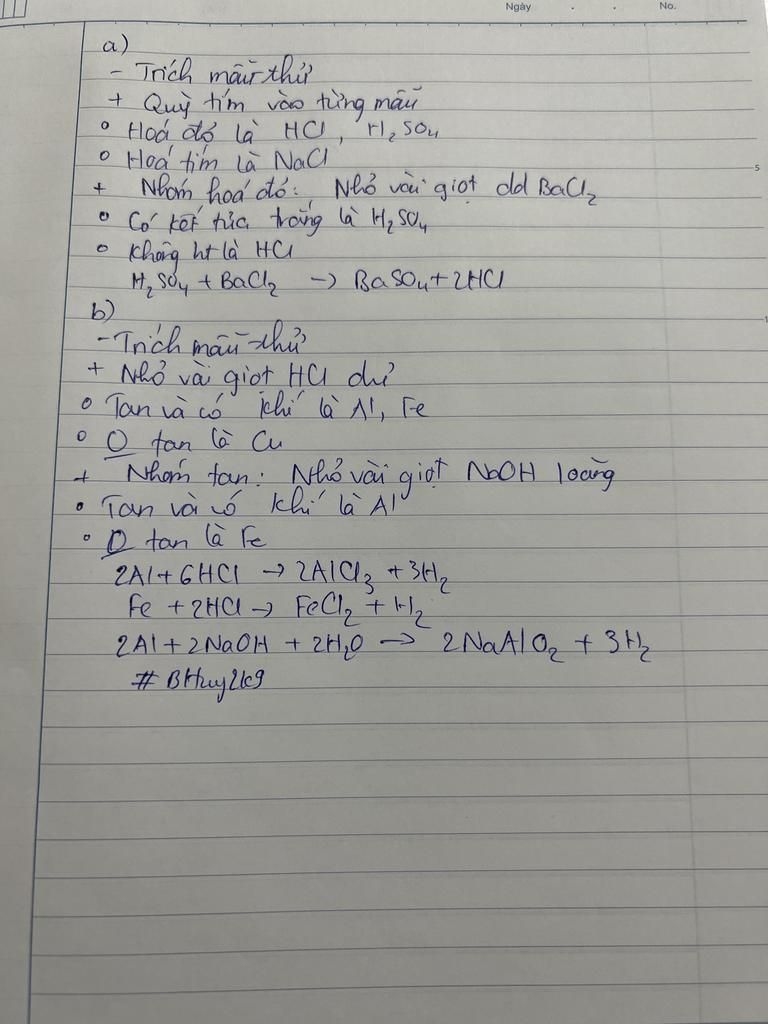 Ngày . . No.
a)
- Trích mẫu thử
+ Quỳ tím vào từng mẫu
o Hoá đỏ là HCl, H₂SO₄
o Hoá tím là NaCl
+ Nhóm hoá đỏ: Nhỏ vài giọt dd BaCl₂
o Có kết tủa trắng là H₂SO₄
o Không ht là HCl
H₂SO₄ + BaCl₂ → BaSO₄ + 2HCl
b)
- Trích mẫu thử
+ Nhỏ vài giọt HCl dư
o Tan và có khí là Al, Fe
o O tan là Cu
+ Nhóm tan: Nhỏ vài giọt NaOH loãng
o Tan và có khí là Al
o O tan là Fe
2Al + 6HCl → 2AlCl₃ + 3H₂
Fe + 2HCl → FeCl₂ + H₂
2Al + 2NaOH + 2H₂O → 2NaAlO₂ + 3H₂
# BHuy2k9
5
1